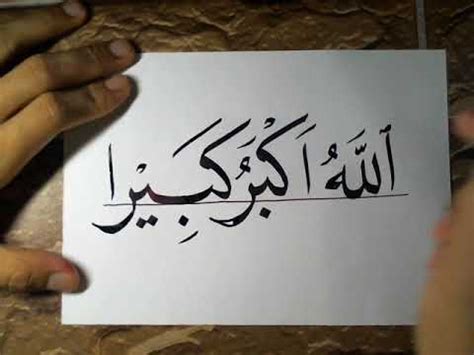 ٱللَّهُ اَكْبَرُ كَبِيْرا